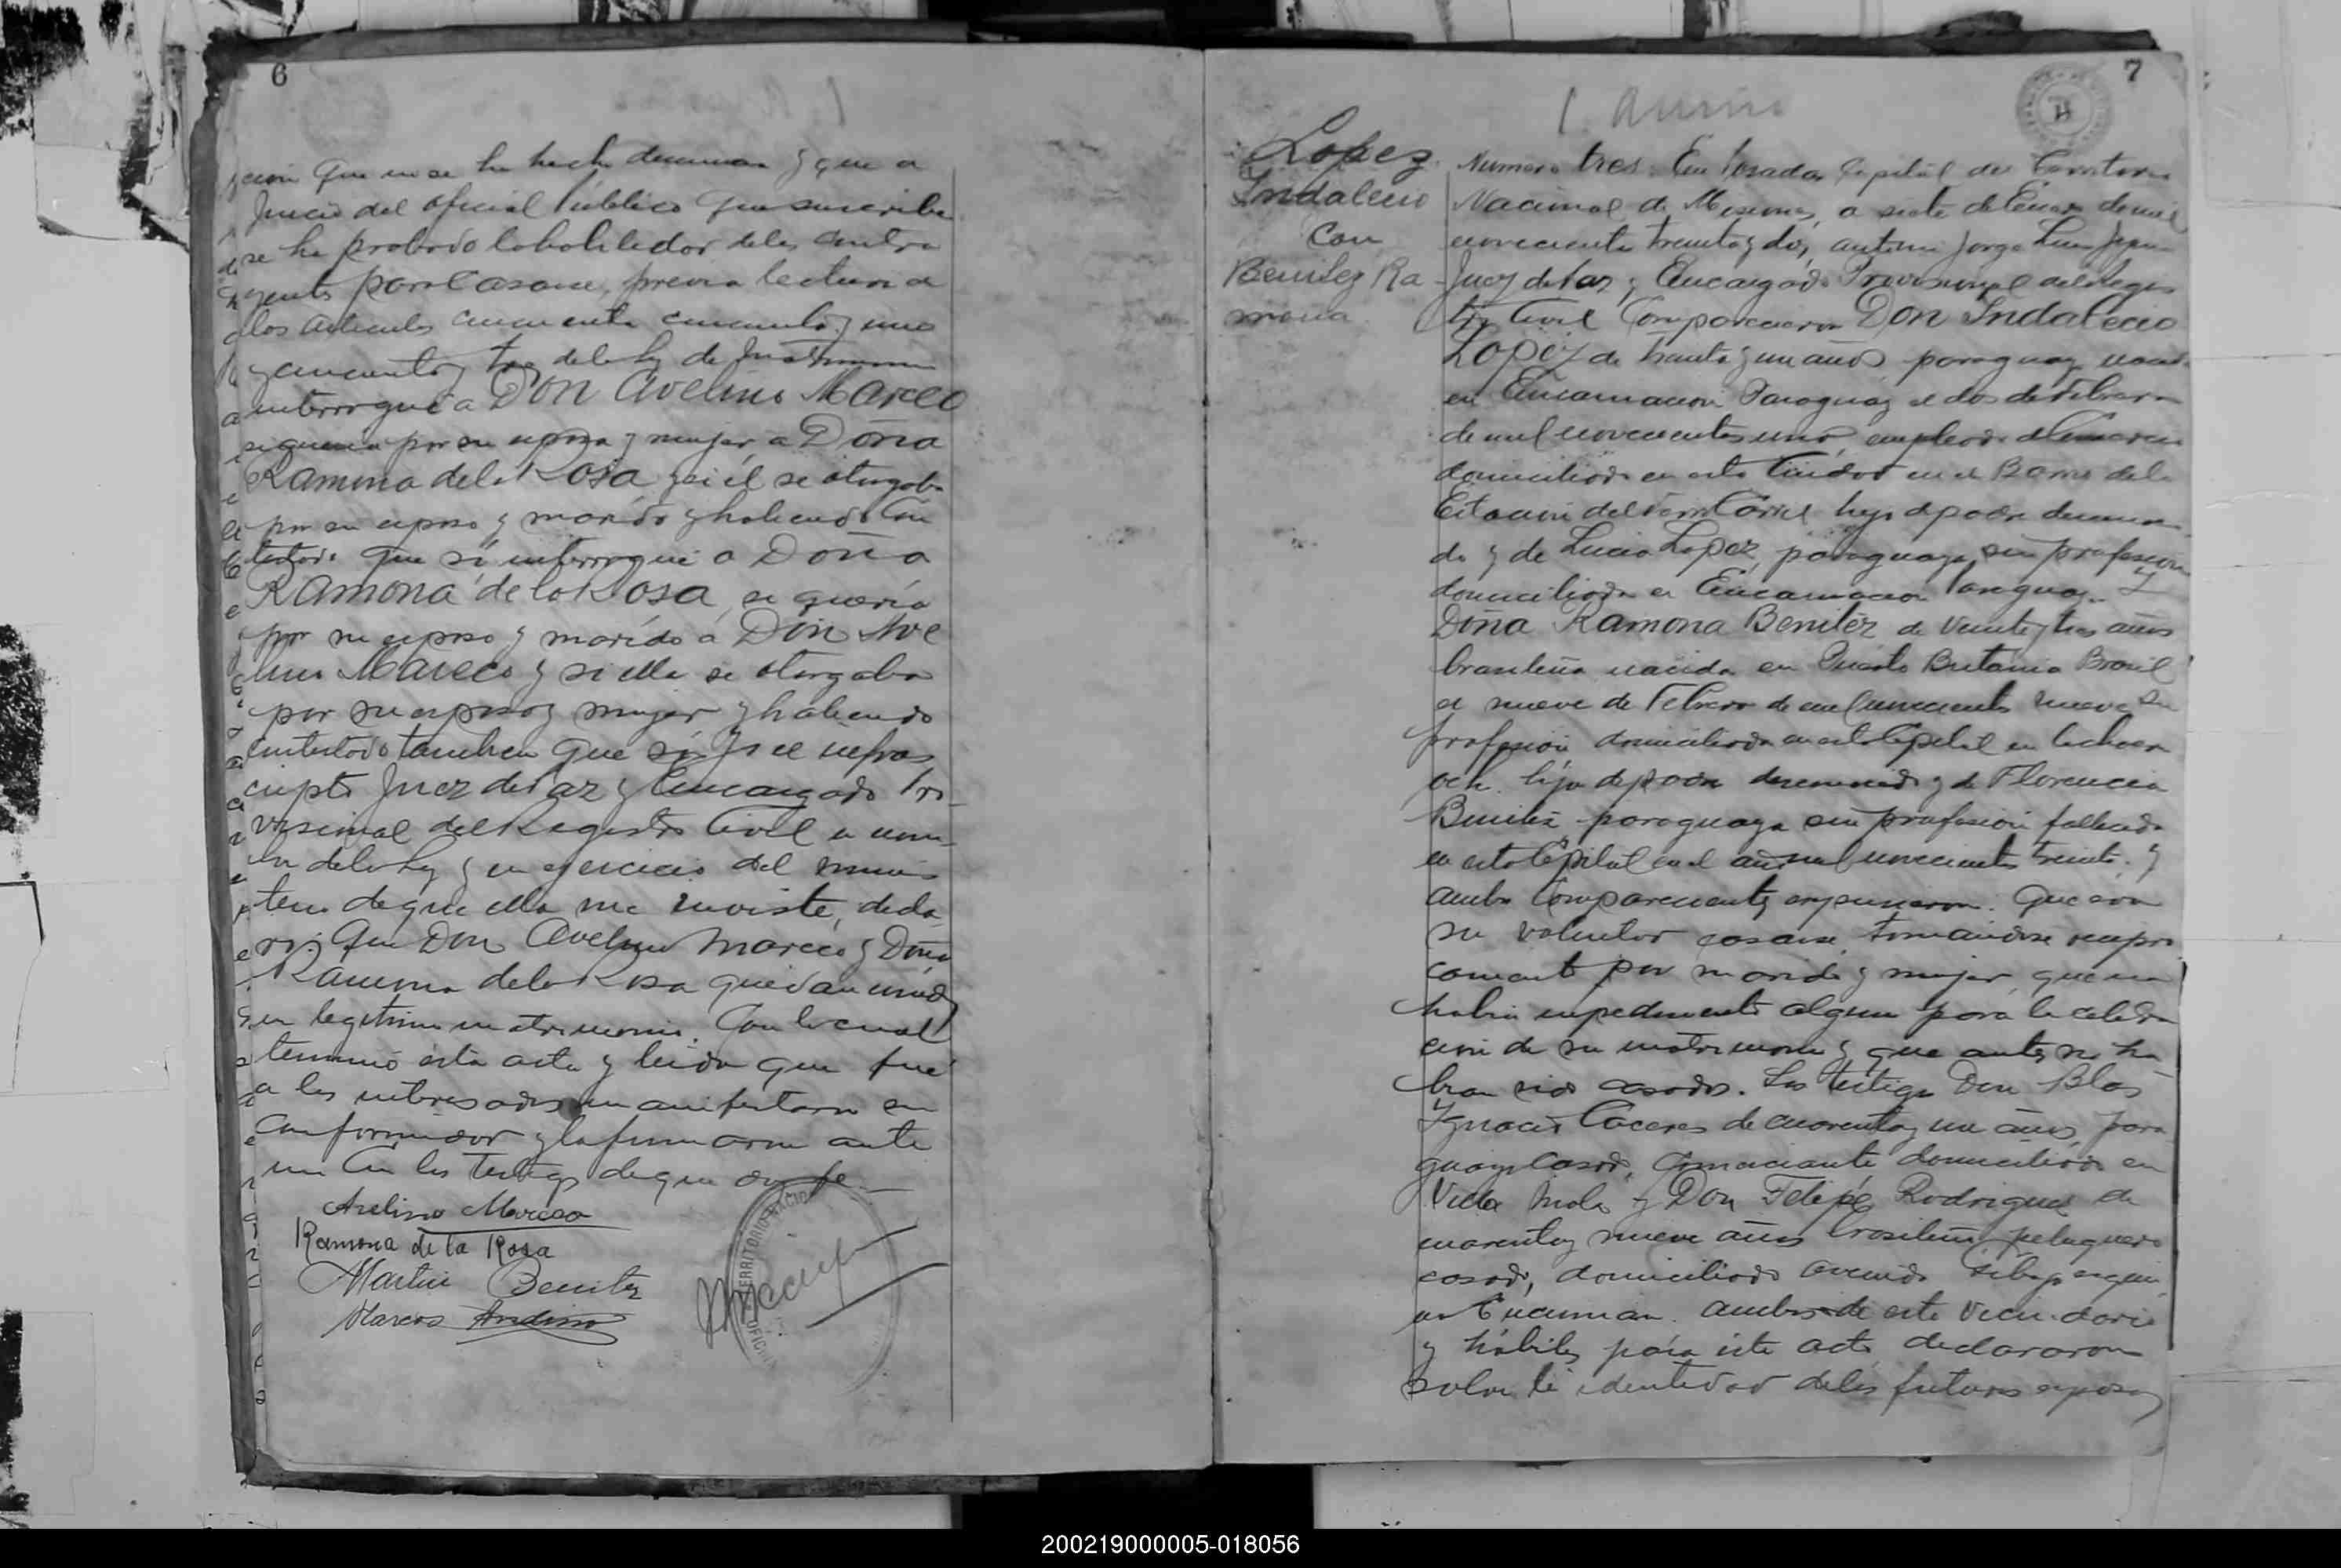 6
cion que no se ha hecho denuncia y que a
Juicio del oficial Público que suscribe
se ha probado la habilidad de los contra
yentes para casarse, previa lectura de
los articulos cincuenta cincuenta y uno
y cincuenta y tres de la ley de Matrimonio
interrogué a Don Avelino Mareco
si queria por su esposa y mujer a Doña
Ramona de la Rosa y si él se otorgaba
por su esposo y marido y habiendo con
testado que sí interrogué a Doña
Ramona de la Rosa si quería
por su esposo y marido a Don Ave
lino Mareco y si ella se otorgaba
por su esposa y mujer y habiendo
contestado tambien que sí, Yo el infras
cripto Juez de Paz y Encargado Pro
visional del Registro Civil a nom
bre de la Ley y en ejercicio del minis
terio de que ella me inviste, decla
ro: Que Don Avelino Mareco y Doña
Ramona de la Rosa quedan unidos
en legitimo matrimonio. Con lo cual
terminó esta acta y leida que fué
a los interesados manifestaron su
conformidad y la firmaron ante
mi con los testigos de que doy fe
Avelino Mareco
Ramona de la Rosa
Martin Benitez
Marcos Andino
TERRITORIO
7
Lopez
Indalecio
con
Benitez Ra
mona
Numero tres. En Posadas Capital del Territorio
Nacional de Misiones, a siete de Enero de mil
novecientos treinta y dos, ante mi Jorge
Juez de Paz y Encargado Provisional del Regis
tro Civil Comparecieron Don Indalecio
Lopez de treinta y un años paraguayo nacido
en Encarnacion Paraguay el dos de Febrero
de mil novecientos uno, empleado de Comercio
domiciliado en esta Ciudad en el Barrio de la
Estacion del Ferro Carril hijo de padre descono
do y de Lucia Lopez, paraguaya, sin profesion
domiciliada en Encarnacion Paraguay. Y
Doña Ramona Benitez de veinte y tres años
brasileña nacida en Puerto Britania Brasil
el nueve de Febrero de mil novecientos nueve sin
profesión domiciliada en esta Capital en
hija de padre desconocido y de Florencia
Benitez paraguaya sin profesión fallecida
en esta Capital en el año mil novecientos treinta. y
ambos Comparecientes expusieron: Que era
su voluntad casarse tomandose recipro
camente por marido y mujer, que no
habia impedimento alguno para la celebra
cion de su matrimonio y que antes no ha
bian sido casados. Los testigos Don Blas
Ygnacio Caceres de cuarenta y un años, para
guayo casado, Comerciante domiciliado en
Villa Mola y Don Felipe Rodriguez de
cuarenta y nueve años brasileño peluquero
casado, domiciliado avenida
Tucuman. ambos de este vecindario
y hábiles para este acto declararon
sobre la identidad de los futuros esposos
200219000005-018056